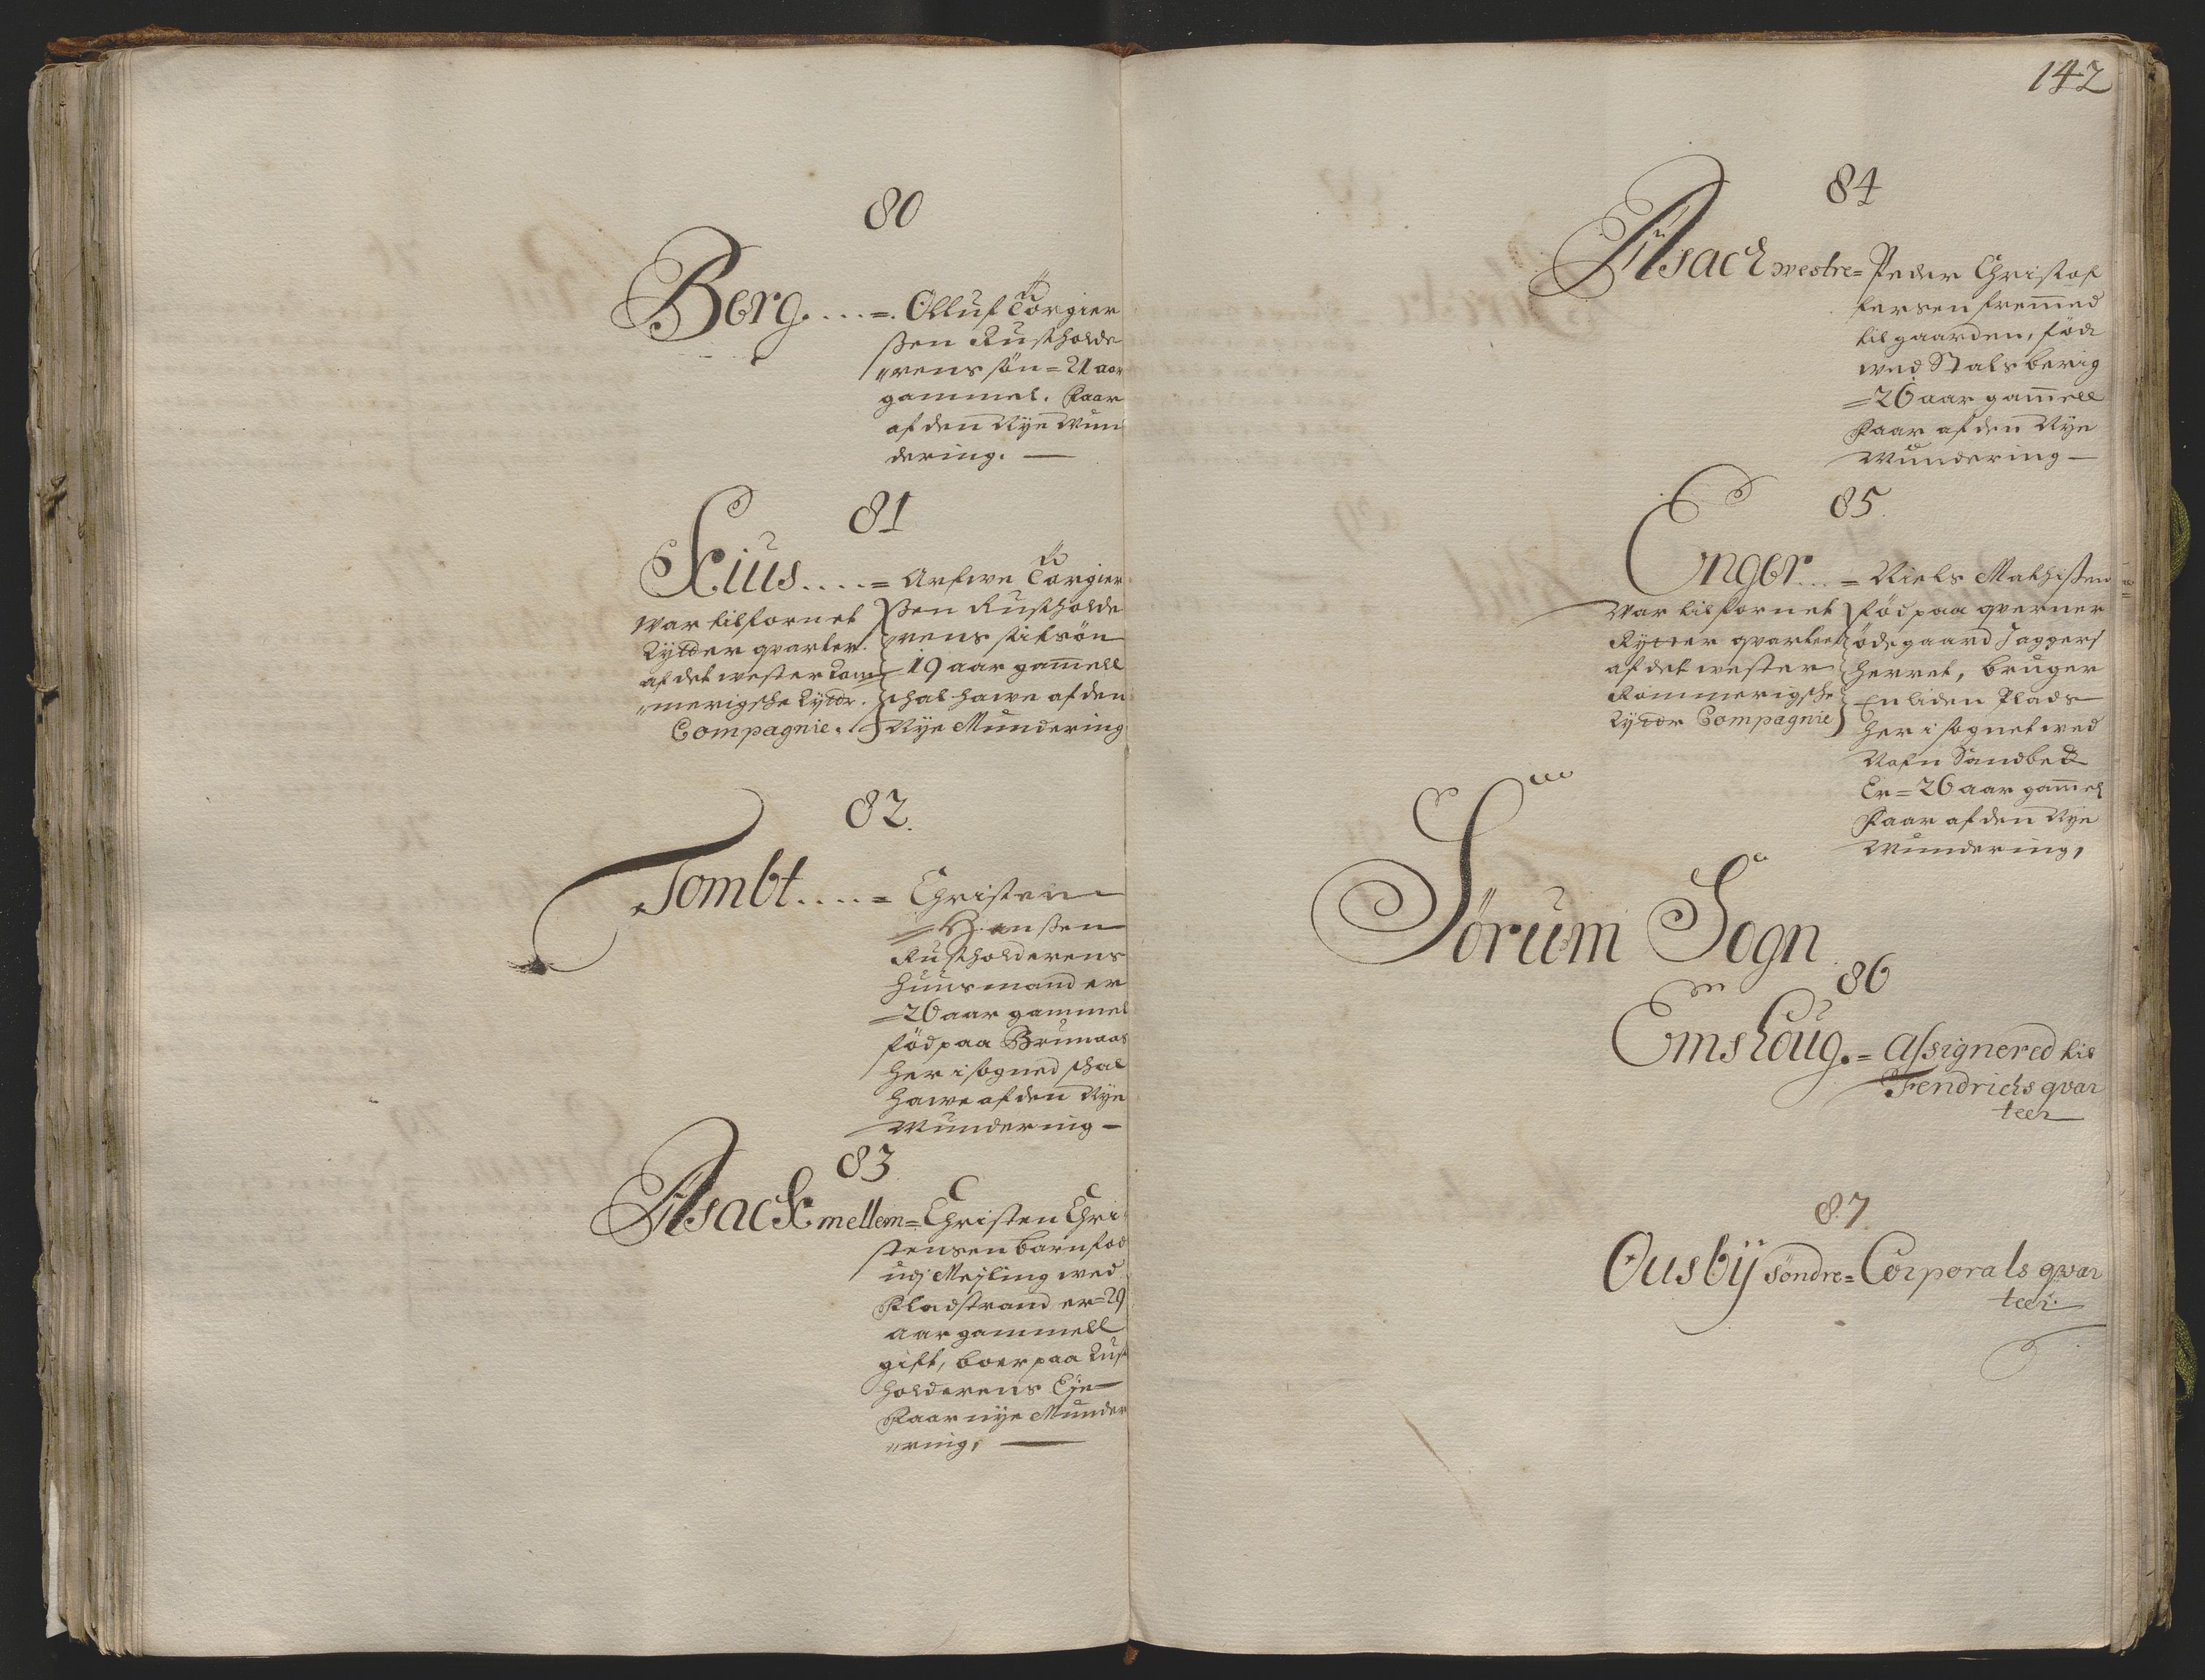 80
Berg. . . . =. Olluf Torgier
ßen Rustholde
„rens søn = 21 aar
gammel. Faar
af den Nye Mun
dering. —
81
Kius. . . . = Arfwe Torgier
ßen Rustholde
„rens stifsøn
19 aar gam̅ell
schal hawe af den
Nye Mundering
War tilfornet
Rytter qvarter
af det wester Rom
„merigsche Rytter.
Compagnie.
82.
Tombt. . . . = Christen
Hansen
Rustholderens
huusmand er
= 26 aar gammel
föd paa Brunaas
her i sogned schal
hawe af den Nye
Mundering —
83
Asack mellem = Christen Chri
stensen barnfød
udj Mejling wed
Fladstrand er = 29
aar gammell
gift, boer paa Rust
holderens Eje
Faar nye Munde
„ring, —
142
84
Asack westre = Peder Christof
fersen frem̅ed
til gaarden, föde
wed Stalsberig
= 26 aar gam̅ell
Faar af den Nye
Mundering —
85.
Enger. . . = Niels Mathißen
föd paa qverner
ödegaard Jaggers
herret, bruger
En liden Plads
her i sognet wed
Nafn Sandbek
Er = 26 aar gam̅el
Faar af den Nye
Mundering,
War tilfornet
Rytter qvarteer
af det wester
Rommerigsche
Rytter Compagnie
Sörum Sogn
86
Emshoug. = Assignered til
Fendrichs qvar
teer
87
Ousbÿ söndre = Corporals qvar
teer.